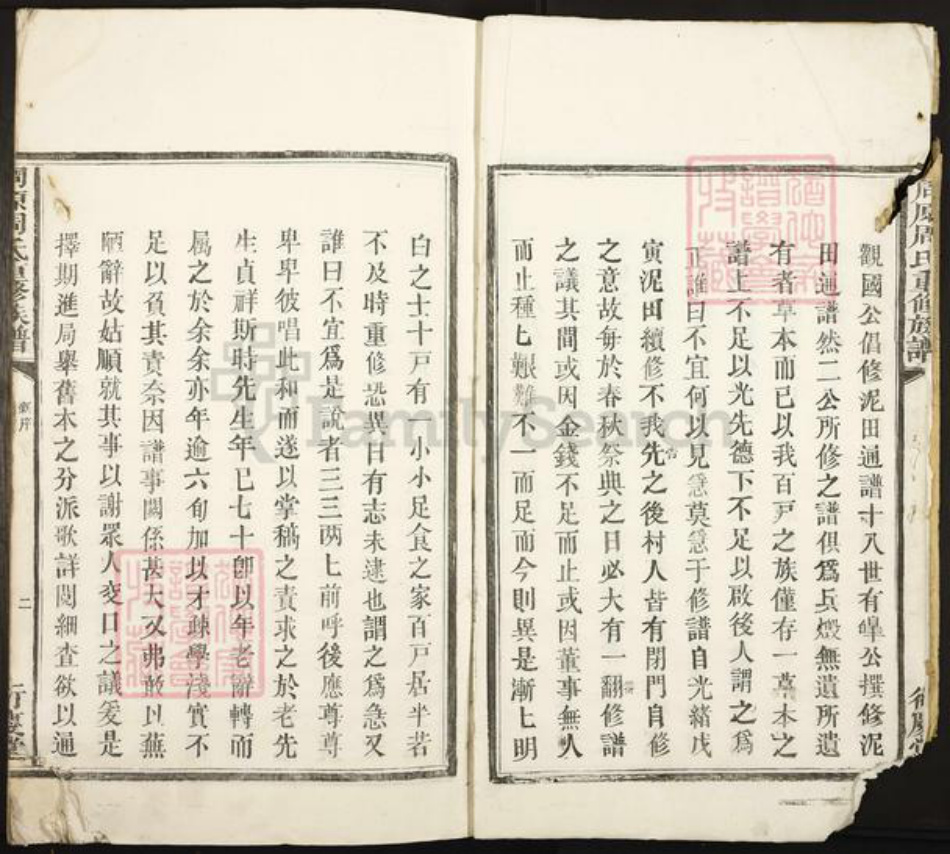 周氏重修族譜
觀國公倡修泥田通譜十八世有皥公撰修泥
田通譜然二公所修之譜俱爲兵燬無遺所遺
有者草本而已以我百戸之族僅存一草本之
譜上不足以光先德下不足以啟後人謂之爲
正誰曰不宜何以見急莫急于修譜自光緒戊
寅泥田續修不我先告之後村人皆有閉門自修
之意故每於春秋祭典之日必大有一翻修譜
之議其間或因金錢不足而止或因董事無人
而止種七艱難不一而足而今則異是漸七明
白之士十戸有一小小足食之家百戸居半若
不及時重修恐異日有志未逮也謂之爲急又
誰曰不宜爲是說者三三两七前呼後應尊尊
卑卑彼唱此和而遂以掌稿之責求之於老先
生貞祥斯時先生年已七十卽以年老辭轉而
屬之於余余亦年逾六旬加以才疎學淺實不
足以負其責奈因譜事關係甚大又弗敢以蕪
陋辭故姑順就其事以謝眾人交口之議爰是
擇期進局舉舊本之分派歌詳閱細查欲以通
周氏重修族譜
二
衍慶堂
FamilySearch